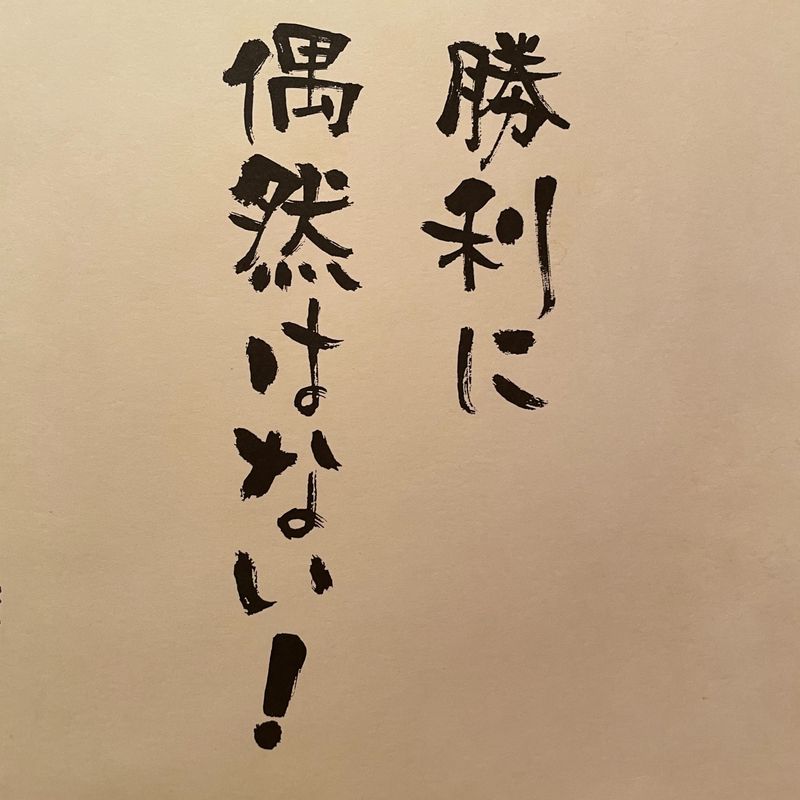 勝利に
偶然はない！